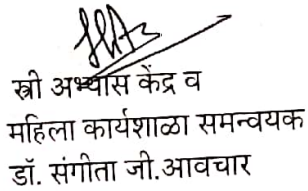 स्त्री अभ्यास केंद्र व
महिला कार्यशाळा समन्वयक
डॉ. संगीता जी.आवचार